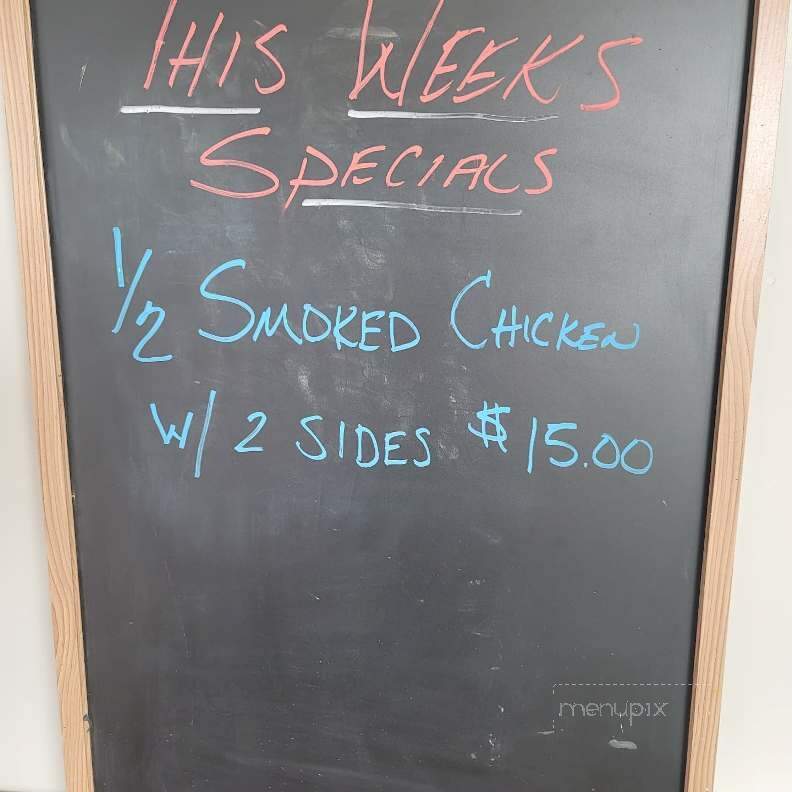 THIS WEEKS
SPECIALS
1/2 SMOKED CHICKEN
W/ 2 SIDES $15.00
menupix